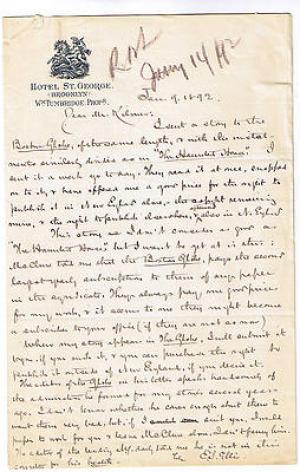 Rec'd
Jany 14/92
HOTEL ST. GEORGE.
BROOKLYN
Wm TUMBRIDGE, PROPR.
Jan. 9, 1892.
Dear Mr. Kilmer:
I sent a story to the
Boston Globe, of the same length, & with the instal-
ments similarly divided as in "The Haunted House." I
sent it a week ago to day. They read it at once, snapped
on to it, & have offered me a good price for the right to
publish it in New England alone, the copyright remaining
mine, & the right to publish elsewhere, & also in N. England
This story I don't consider as good as
"The Haunted House," but I want to get at is this:
McClure told me that the Boston Globe, pays the second
largest yearly subscription to them of any paper
in the syndicate. They always pay me good prices
for my work, & it seems to me they might become
a subscriber to your office (if they are not so now)
When my story appears in The Globe, I will submit it
to you, if you wish it, & you can purchase the right to
publish it outside of New England, if you desire it.
The editor of the Globe in his letter speaks handsomely of
the admiration he formed for my stories several years
ago. I don't know whether he cares enough about them to
want them very bad, but, if and you, I will
prefer to work for you & leave McClure alone. I ain't penny him.
The editor of the
for his health. Ed. Ellis.